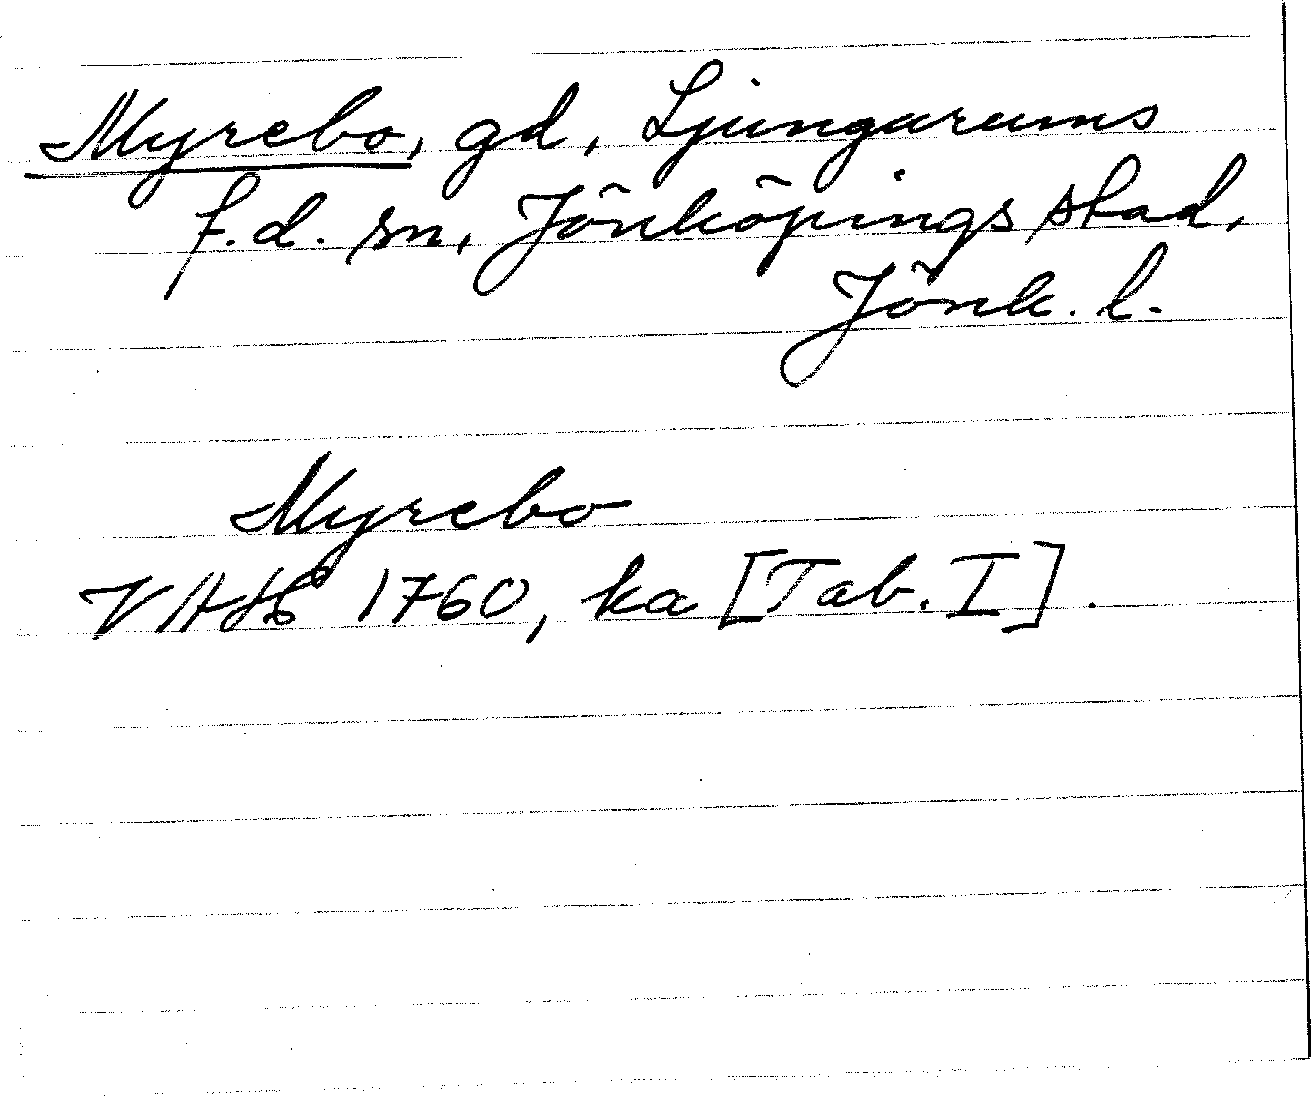 Myrebo, gd, Ljungarums
f.d. sn, Jönköpings stad,
Jönk. l.
Myrebo
VAH 1760, ka [Tab. I].